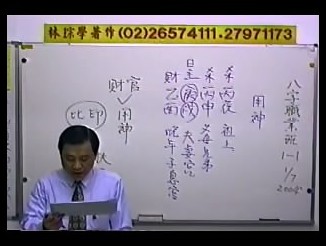 林琮學著作(02)26574111.27971173
八字職業班
1-1
1/7
用神
杀丙戌 祖上
杀丙申 父母兄弟
日主 夫妻宮
財乙酉 晚年子息宮
財官
用神
比印